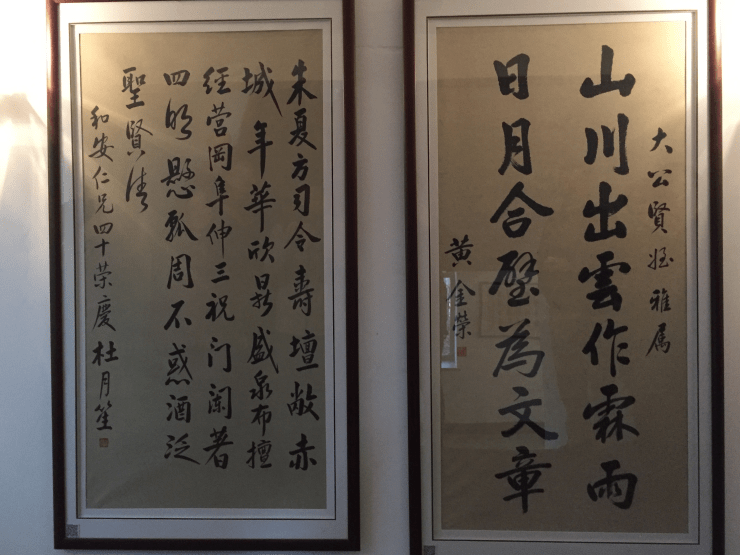 大公賢姪雅屬
山川出雲作霖雨
日月合璧為文章
黃金榮
朱夏方司令壽壇敞赤
城年華欣鼎盛泉布擅
經营岡阜伸三祝门闌著
四明懸弧周不惑酒泛
聖賢清
和安仁兄四十荣慶 杜月笙